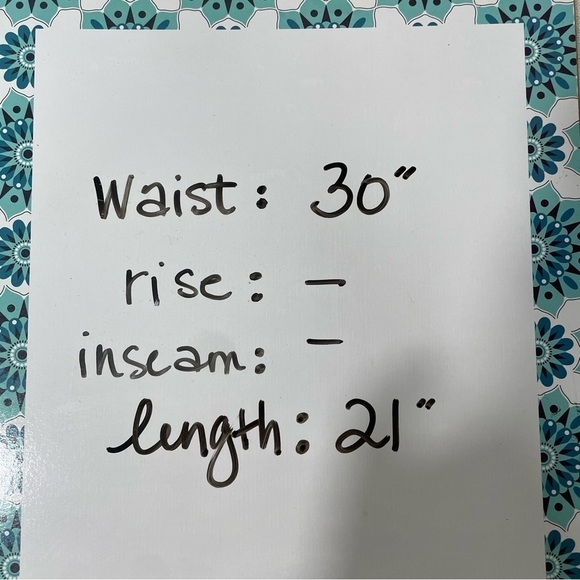 Waist: 30"
rise: -
inseam: -
length: 21"